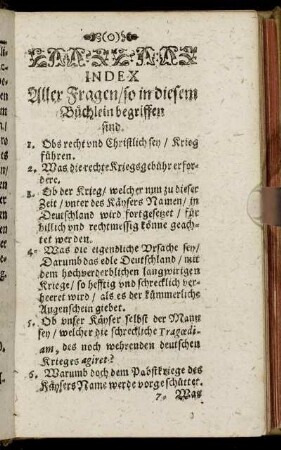 (o)
INDEX
Aller Fragen/so in diesem
Büchlein begriffen
sind.
1. Obs recht vnd Christlich sey / Krieg
führen.
2. Was die rechte Kriegsgebühr erfor-
dere.
3. Ob der Krieg / welcher nun zu dieser
Zeit / vnter des Käysers Namen / in
Deutschland wird fortgesetzt / für
billich vnd rechtmessig könne geach-
tet werden.
4. Was die eigendliche Vrsache sey /
Darumb das edle Deutschland / mit
dem hochverderblichen langwirigen
Kriege / so hefftig vnd schrecklich ver-
heeret wird / als es der kümmerliche
Augenschein giebet.
5. Ob vnser Käyser selbst der Mann
sey / welcher die schreckliche Tragœdi-
am, des noch wehrenden deutschen
Krieges agiret?
6. Warumb doch dem Pabstkriege des
Käysers Name werde vorgeschüttet.
7. Was